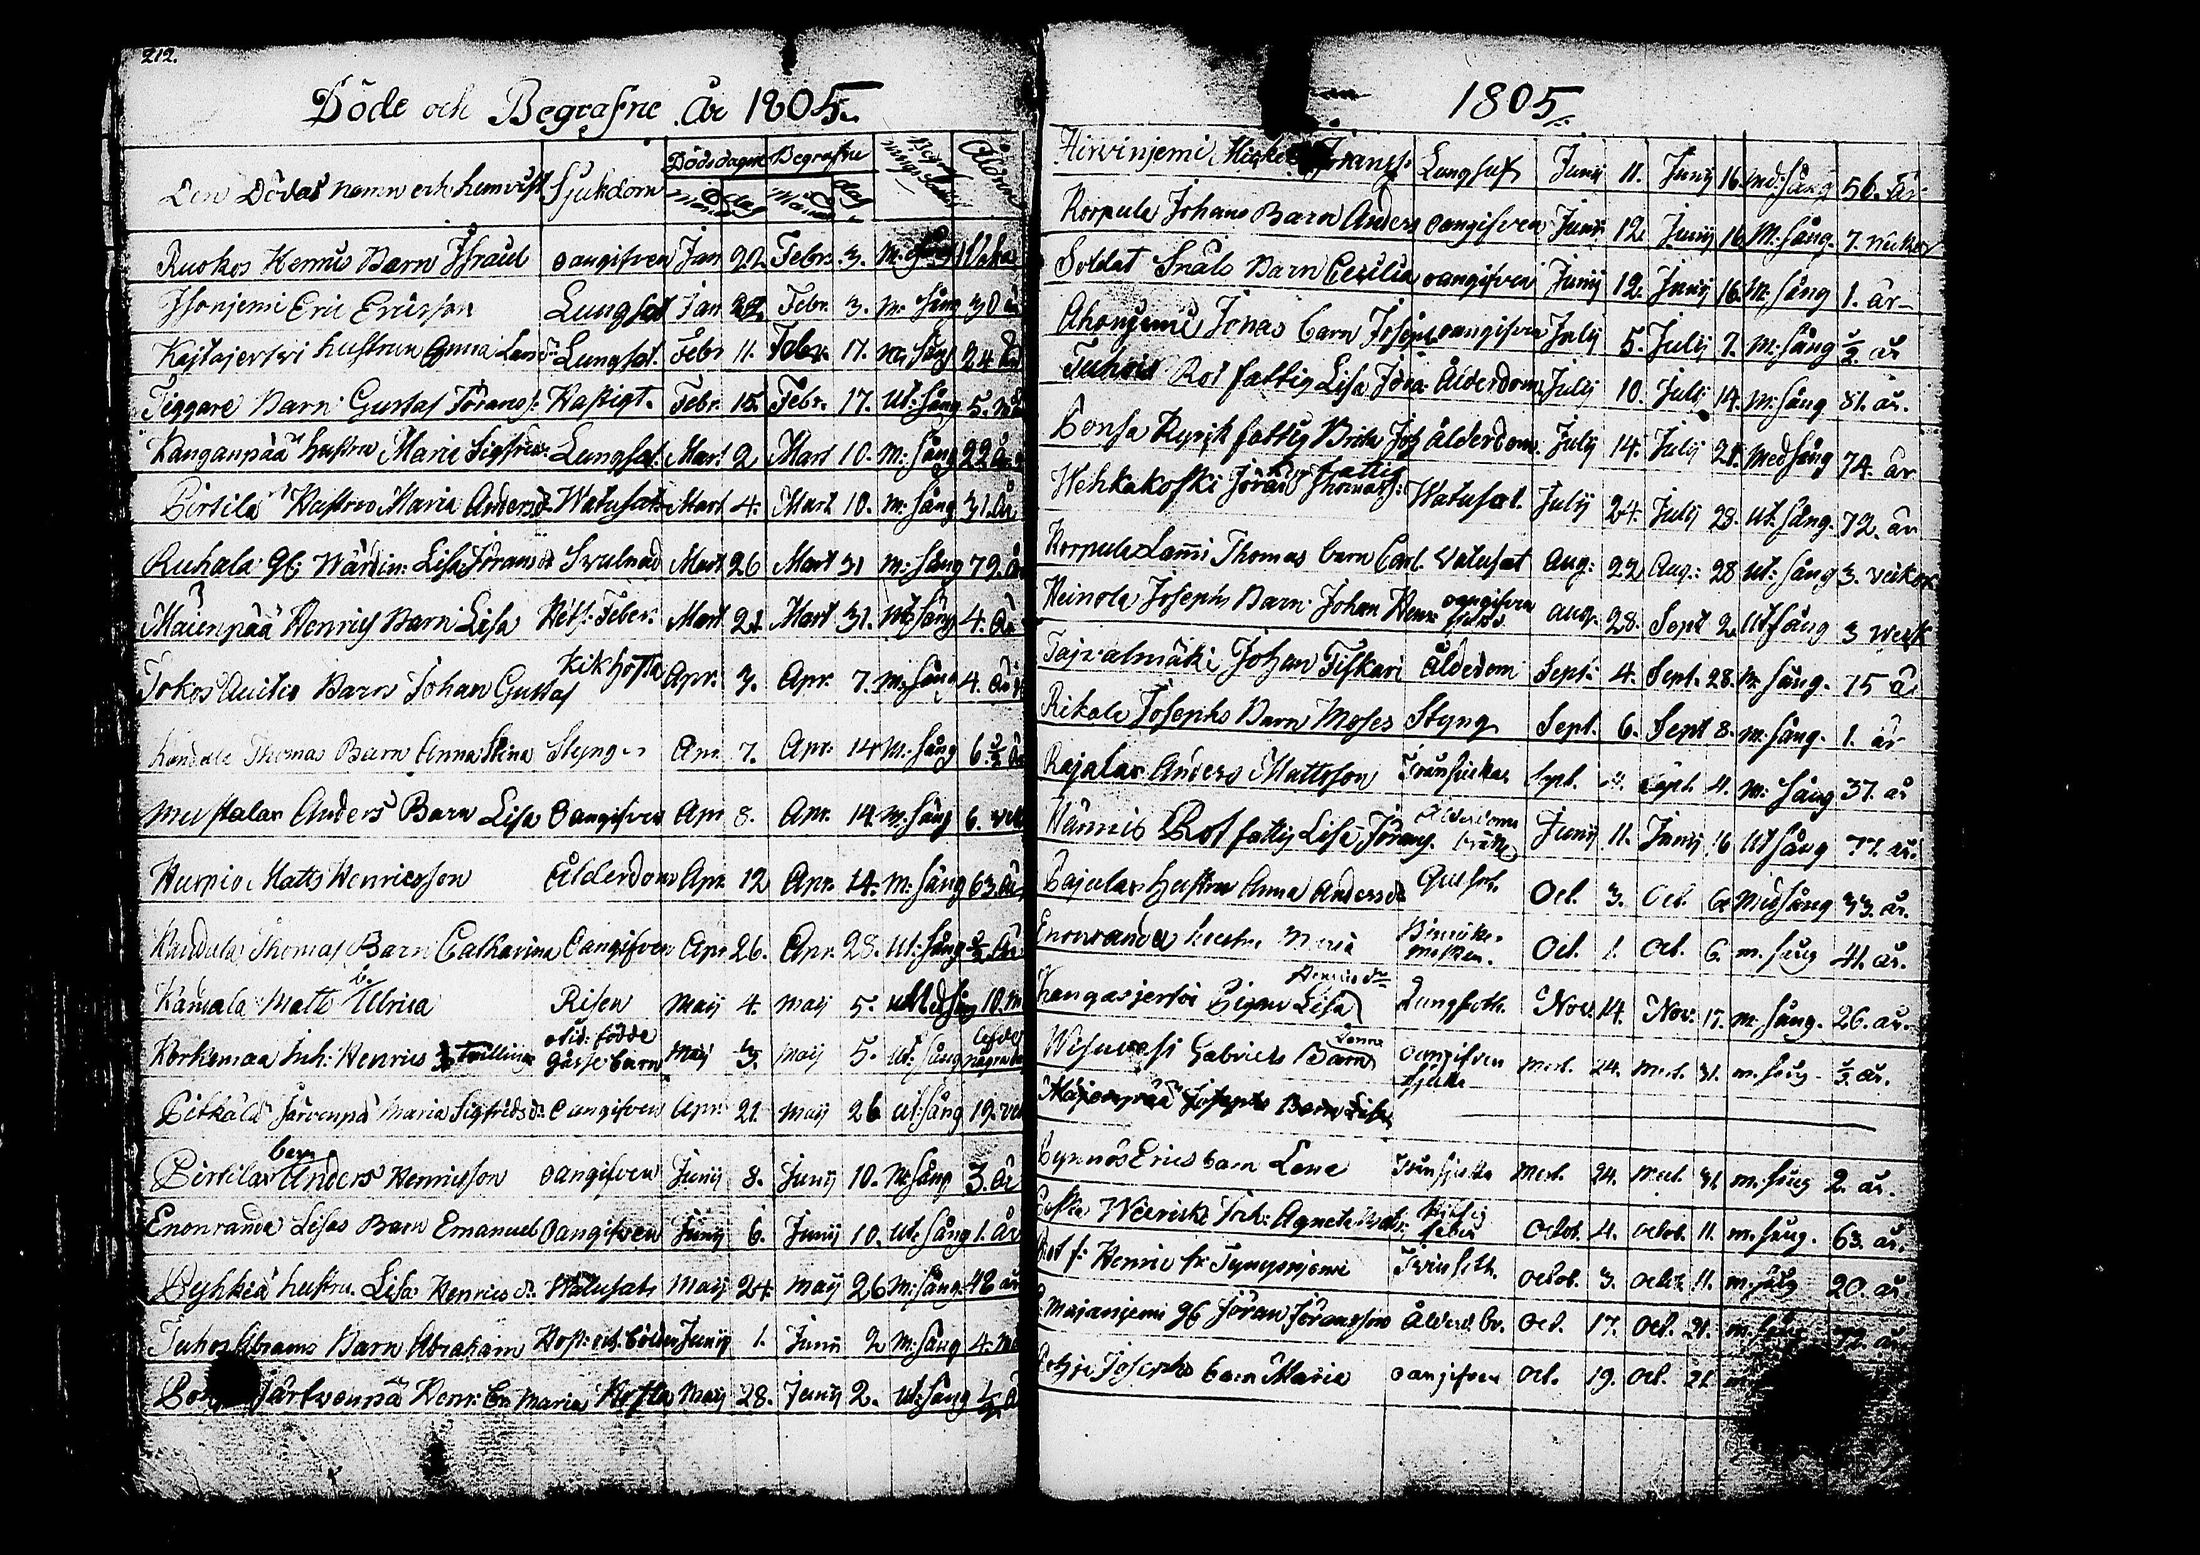 212.
Döde och Begrafne År 1805.
Den Dödas namn och hemvist Sjukdom Dödsdagen Begrafne Åldren
Månad dag Månad dag
Ruokos Henrics Barn Israel oangifven Jan 22. Febr. 3. m: sång
Isonjemi Eric Ericsson Lungsot Jan 22. Febr. 3. m: sång 30 år
Kajtajerfvi hustrun Anna Lungsot. Febr 11. Febr. 17. m: sång 24 år
Tiggare Barn Gustaf Jöranss: Hastigt. Febr. 15. Febr. 17. Ut: sång 5. må
Kanganpää hustru Maria Sigfrids Lungsot. Mart 2 Mart 10. m: sång 22 år
Pirtilä Hustru Maria Andersd: Watusot Mart 4. Mart 10. m: sång 31. år
Ruhala gl: Wärdin: Lisa Jöransd: Svulnad Mart 26 Mart 31 m: sång 72. år
Maienpää Henrics Barn Lisa Het: Feber. Mart 21 Mart 31. Ut: sång 4. år
Jokos Barn Johan Gustaf Kikhosta Apr. 3. Apr. 7. m: sång 4. år
Kandala Thomas Barn Anna Stina Styng Apr. 7. Apr. 14 m: sång 6.
Mustalar Anders Barn Lisa Oangifven Apr 8. Apr. 14. m: sång 6. vek
Hurpio Matts Henricsson Ålderdom Apr. 12 Apr. 14. m: sång 63. år
Kandala Thomas Barn Catharina Oangifven Apr 26. Apr. 28. Ut: sång ½ år
Kandala Matts b. Ulrica Risen Maij 4. Maij 5. Medsång 10. m
Korkamaa Inh: Henrics tvillingar Gåsse barn Maij 3. Maij 5. Ut: sång
Pitkälä Järvenpä Maria Sigfridsd: Oangifven Apr. 21. Maij 26 Ut: sång 19. vek
Pirtilar barn Anders Henricsson oangifven Junij 8. Junij 10. m: sång 3. år
Enonranda Lisas Barn Emanuel Oangifven Junij 6. Junij 10. Ut: sång 1. år
hustru Lisa Henricsd: Watusot Maij 24. Maij 26 m: sång 48 år
Juhos Abrams Barn Abraham Junij 1. Junij 2 m: sång 4. må
Järfvenpä Henr: bn Maria Hosta Maij 28. Junij 2. Ut: sång ½ å
1805.
Hirvinjemi Michel Jöranss: Lungsot Junij 11. Junij 16. Med: sång 56. år
Korpula Johans Barn Anders oangifven Junij 12. Junij 16. m: sång. 7. veckor
Soldat Snåls Barn Cecilia oangifven Junij 12. Junij 16. m: sång 1. år
Ahonjemi Jonas barn Joseph oangifven Julij 5. Julij 7. m: sång ½ år
Rot fattig Lisa Jöra Ålderdom Julij 10. Julij 14. m: sång 81. år.
fattig Ålderdom. Julij 14. Julij 21. Medsång 74. år
Hehkakoski Jöran Thomass: Rot fattig Watusot. Julij 24. Julij 28. Ut: sång. 72. år
Korpula Lami Thomas barn Carl. Watusot Aug: 22 Aug: 28 Ut: sång 3. veckor
Heinola Josephs Barn Johan Henr oangifven sjuka Aug. 28. Sept 2. Utsång 3 Veck
Tajvalmäki Johan Fiskari Ålderdom Sept. 4. Sept. 28. m: sång. 75 år
Rikala Josephs Barn Moses Styng Sept. 6. Sept 8. m: sång. 1. år
Rajalar Anders Mattsson Sept. Sept. 4. m: sång 37. år
Hannis Rot fattig Lisa Jörans. Ålderdoms kräm Junij 11. Junij 16 Ut sång 77. år.
Pajular hustru Anna Andersd: Gulsot. Oct. 3. Oct. 6 Medsång 33. år.
Enonranda hustru Maria Oct. 1. Oct. 6. m. sång 41. år.
Kangasjerfvi Pigan Lisa Henricsd: Lungsoth. Nov. 14. Nov. 17. m: sång. 26. år.
Wisuvasi Gabriels Barn oangifven sjuka Mart. 24. Mart. 31. m. sång
Majenpää Josephs Barn Lisa
Kynnös Erics barn Lena Mart. 24. Mart. 31. m: sång 2. år.
Inh: Agneta Hitsig feber Octob. 4. octob. 11. m. sång. 63. år.
Rot f: Henric fr: Octob. 3. octob. 11. m: sång 20. år.
Majanjemi gl Jöran Jöransson Ålderd. br. Oct. 17. Oct. 21. m. sång år
Josephs barn Maria oangifven Oct. 19. Oct. 21.